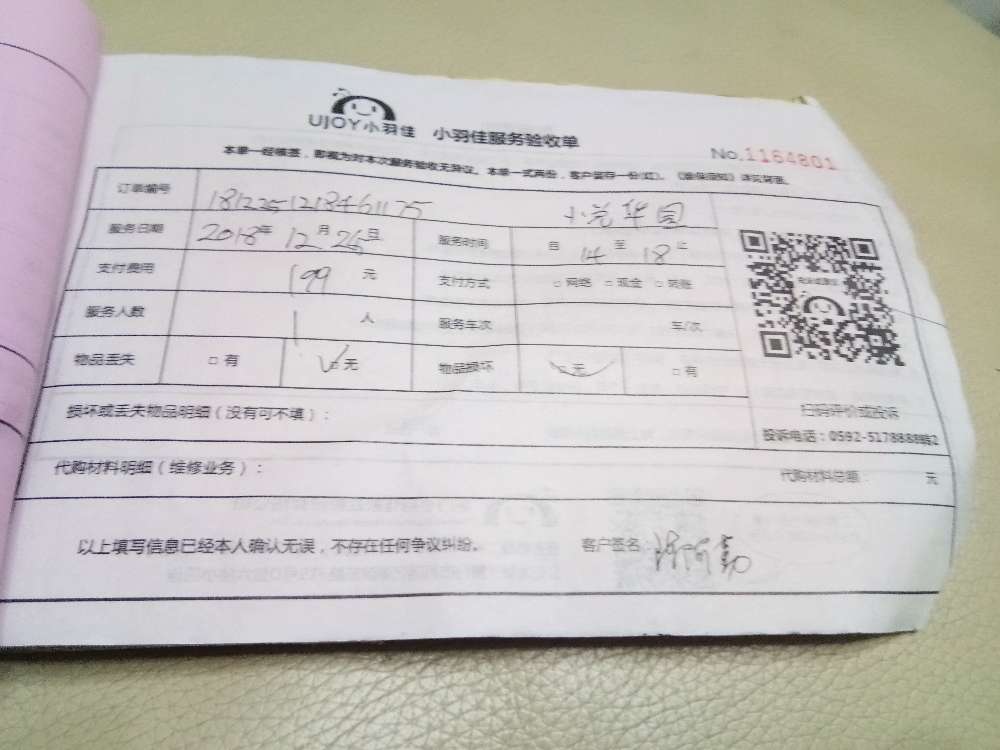 UJOY小羽佳 小羽佳服务验收单
No.1164801
本单一经核签，即视为对本次服务验收无异议。本单一式两份，客户留存一份(红)。
订单编号 1812251218461175 华园
服务日期 2018年 12月 26日 服务时间 自 14 至 18 止
支付费用 199 元 支付方式 □ 网络 □ 现金 □ 转账
服务人数 1 人 服务车次 车/次
物品丢失 □ 有 □ 无 物品损坏 □ 无 □ 有
损坏或丢失物品明细（没有可不填）：
扫码评价或投诉
投诉电话：0592-5178888转2
代购材料明细（维修业务）： 代购材料总额： 元
以上填写信息已经本人确认无误，不存在任何争议纠纷。 客户签名：